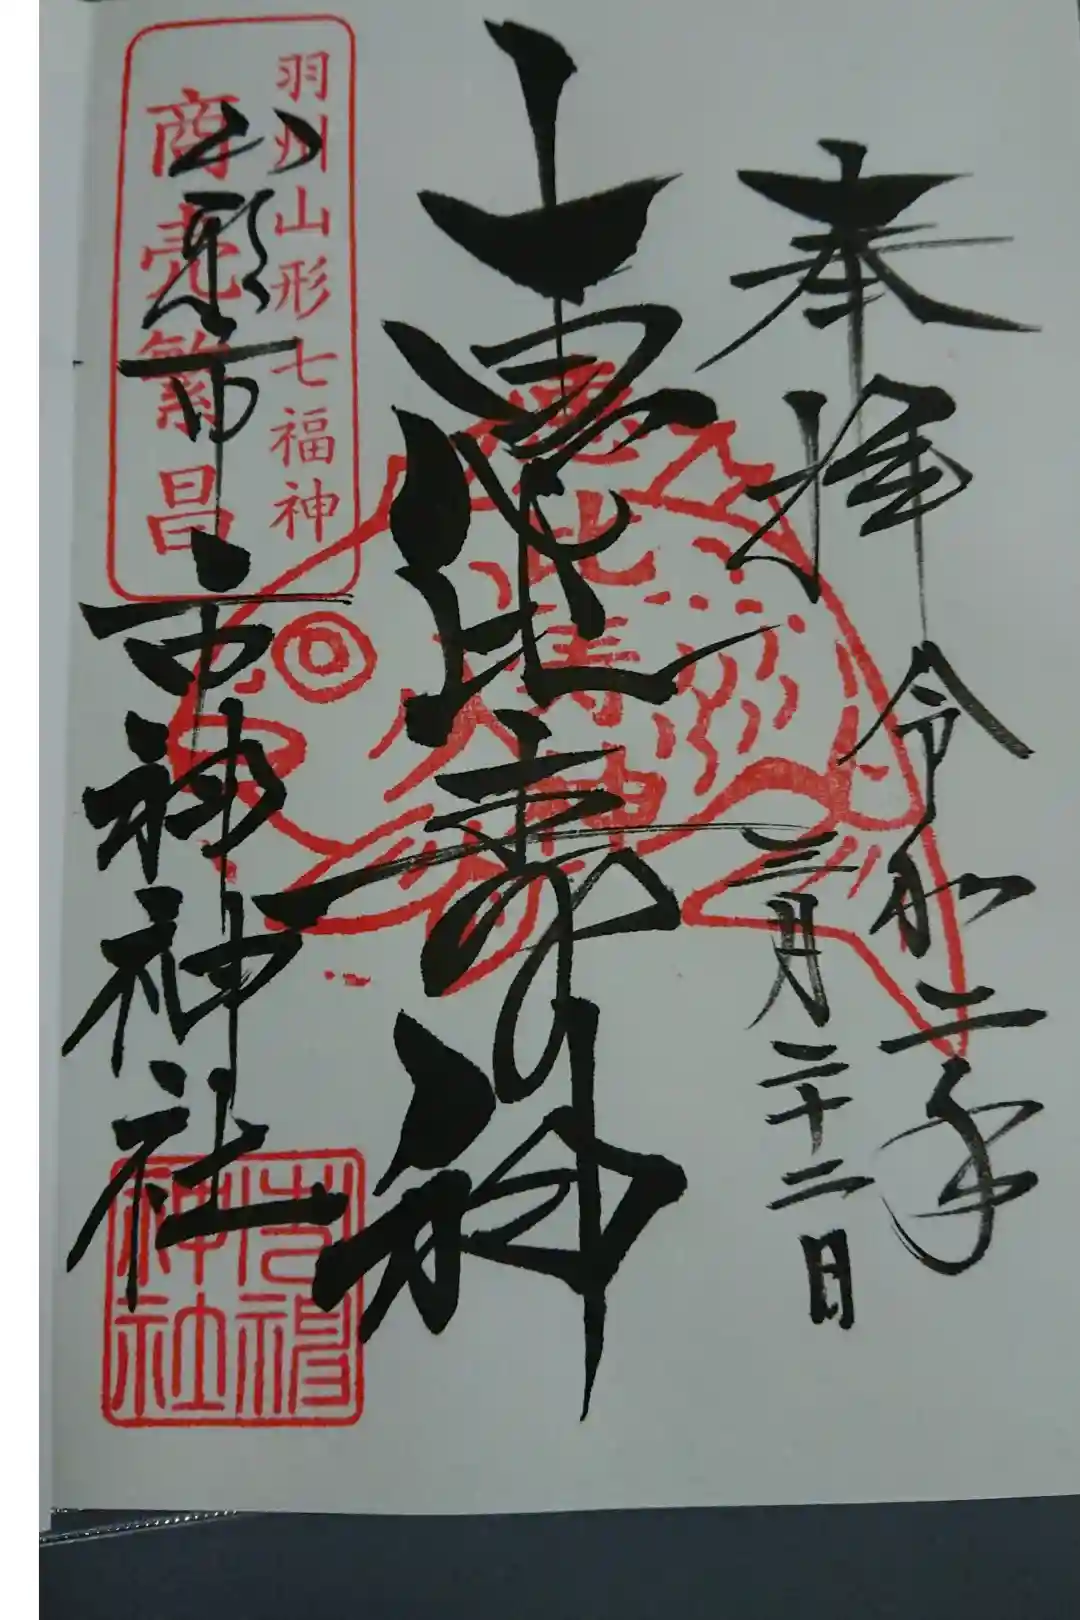 奉拝
令和二年
三月二十二日
恵比寿神
恵比寿神
羽州山形七福神
商売繁昌
山形市
市神神社
市神
神社